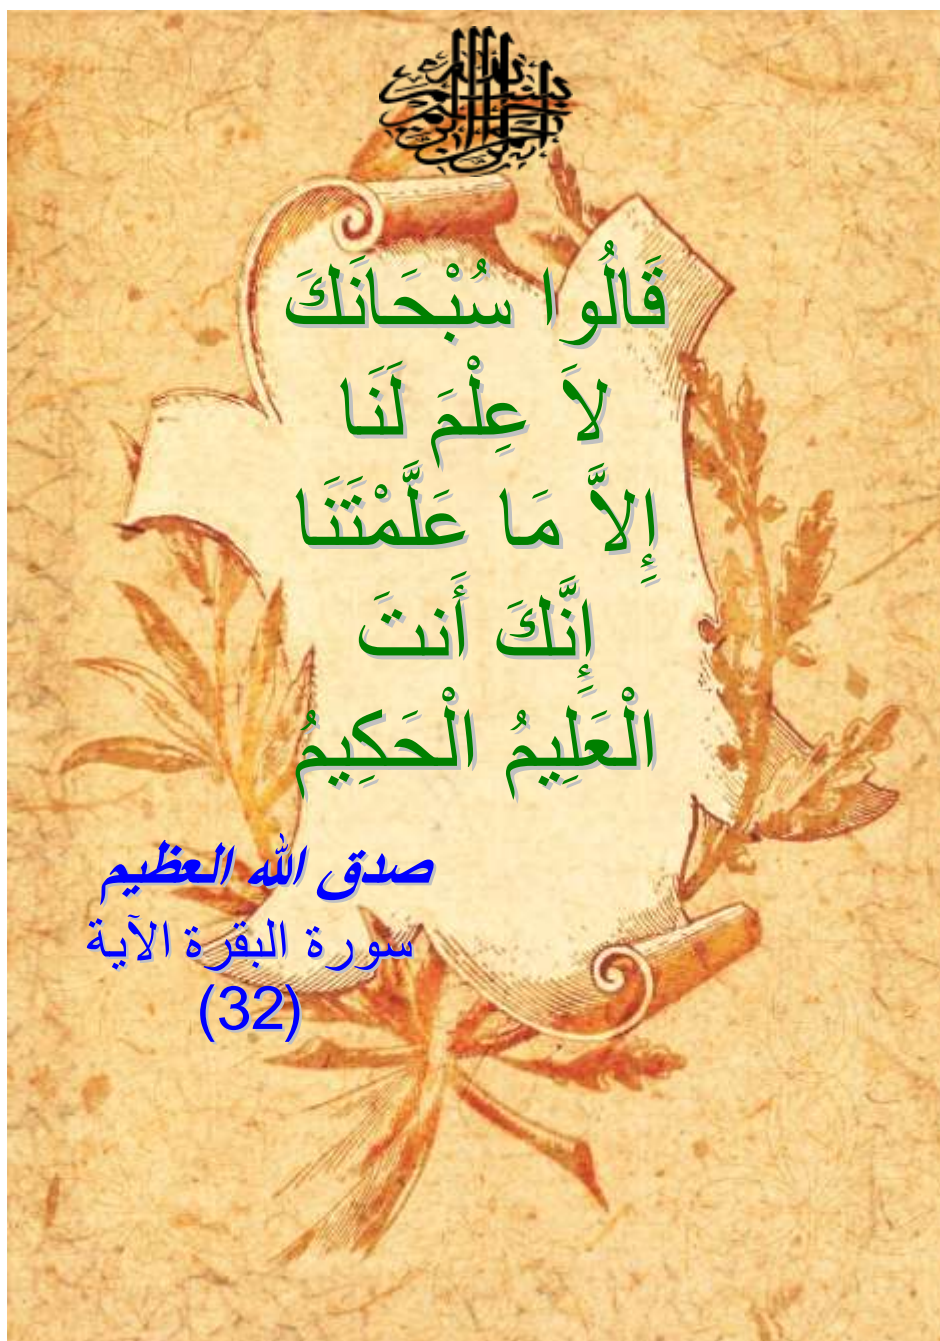 بسم الله الرحمن الرحيم
قَالُوا سُبْحَانَكَ
لاَ عِلْمَ لَنَا
إِلاَّ مَا عَلَّمْتَنَا
إِنَّكَ أَنتَ
الْعَلِيمُ الْحَكِيمُ
صدق الله العظيم
سورة البقرة الآية
(32)